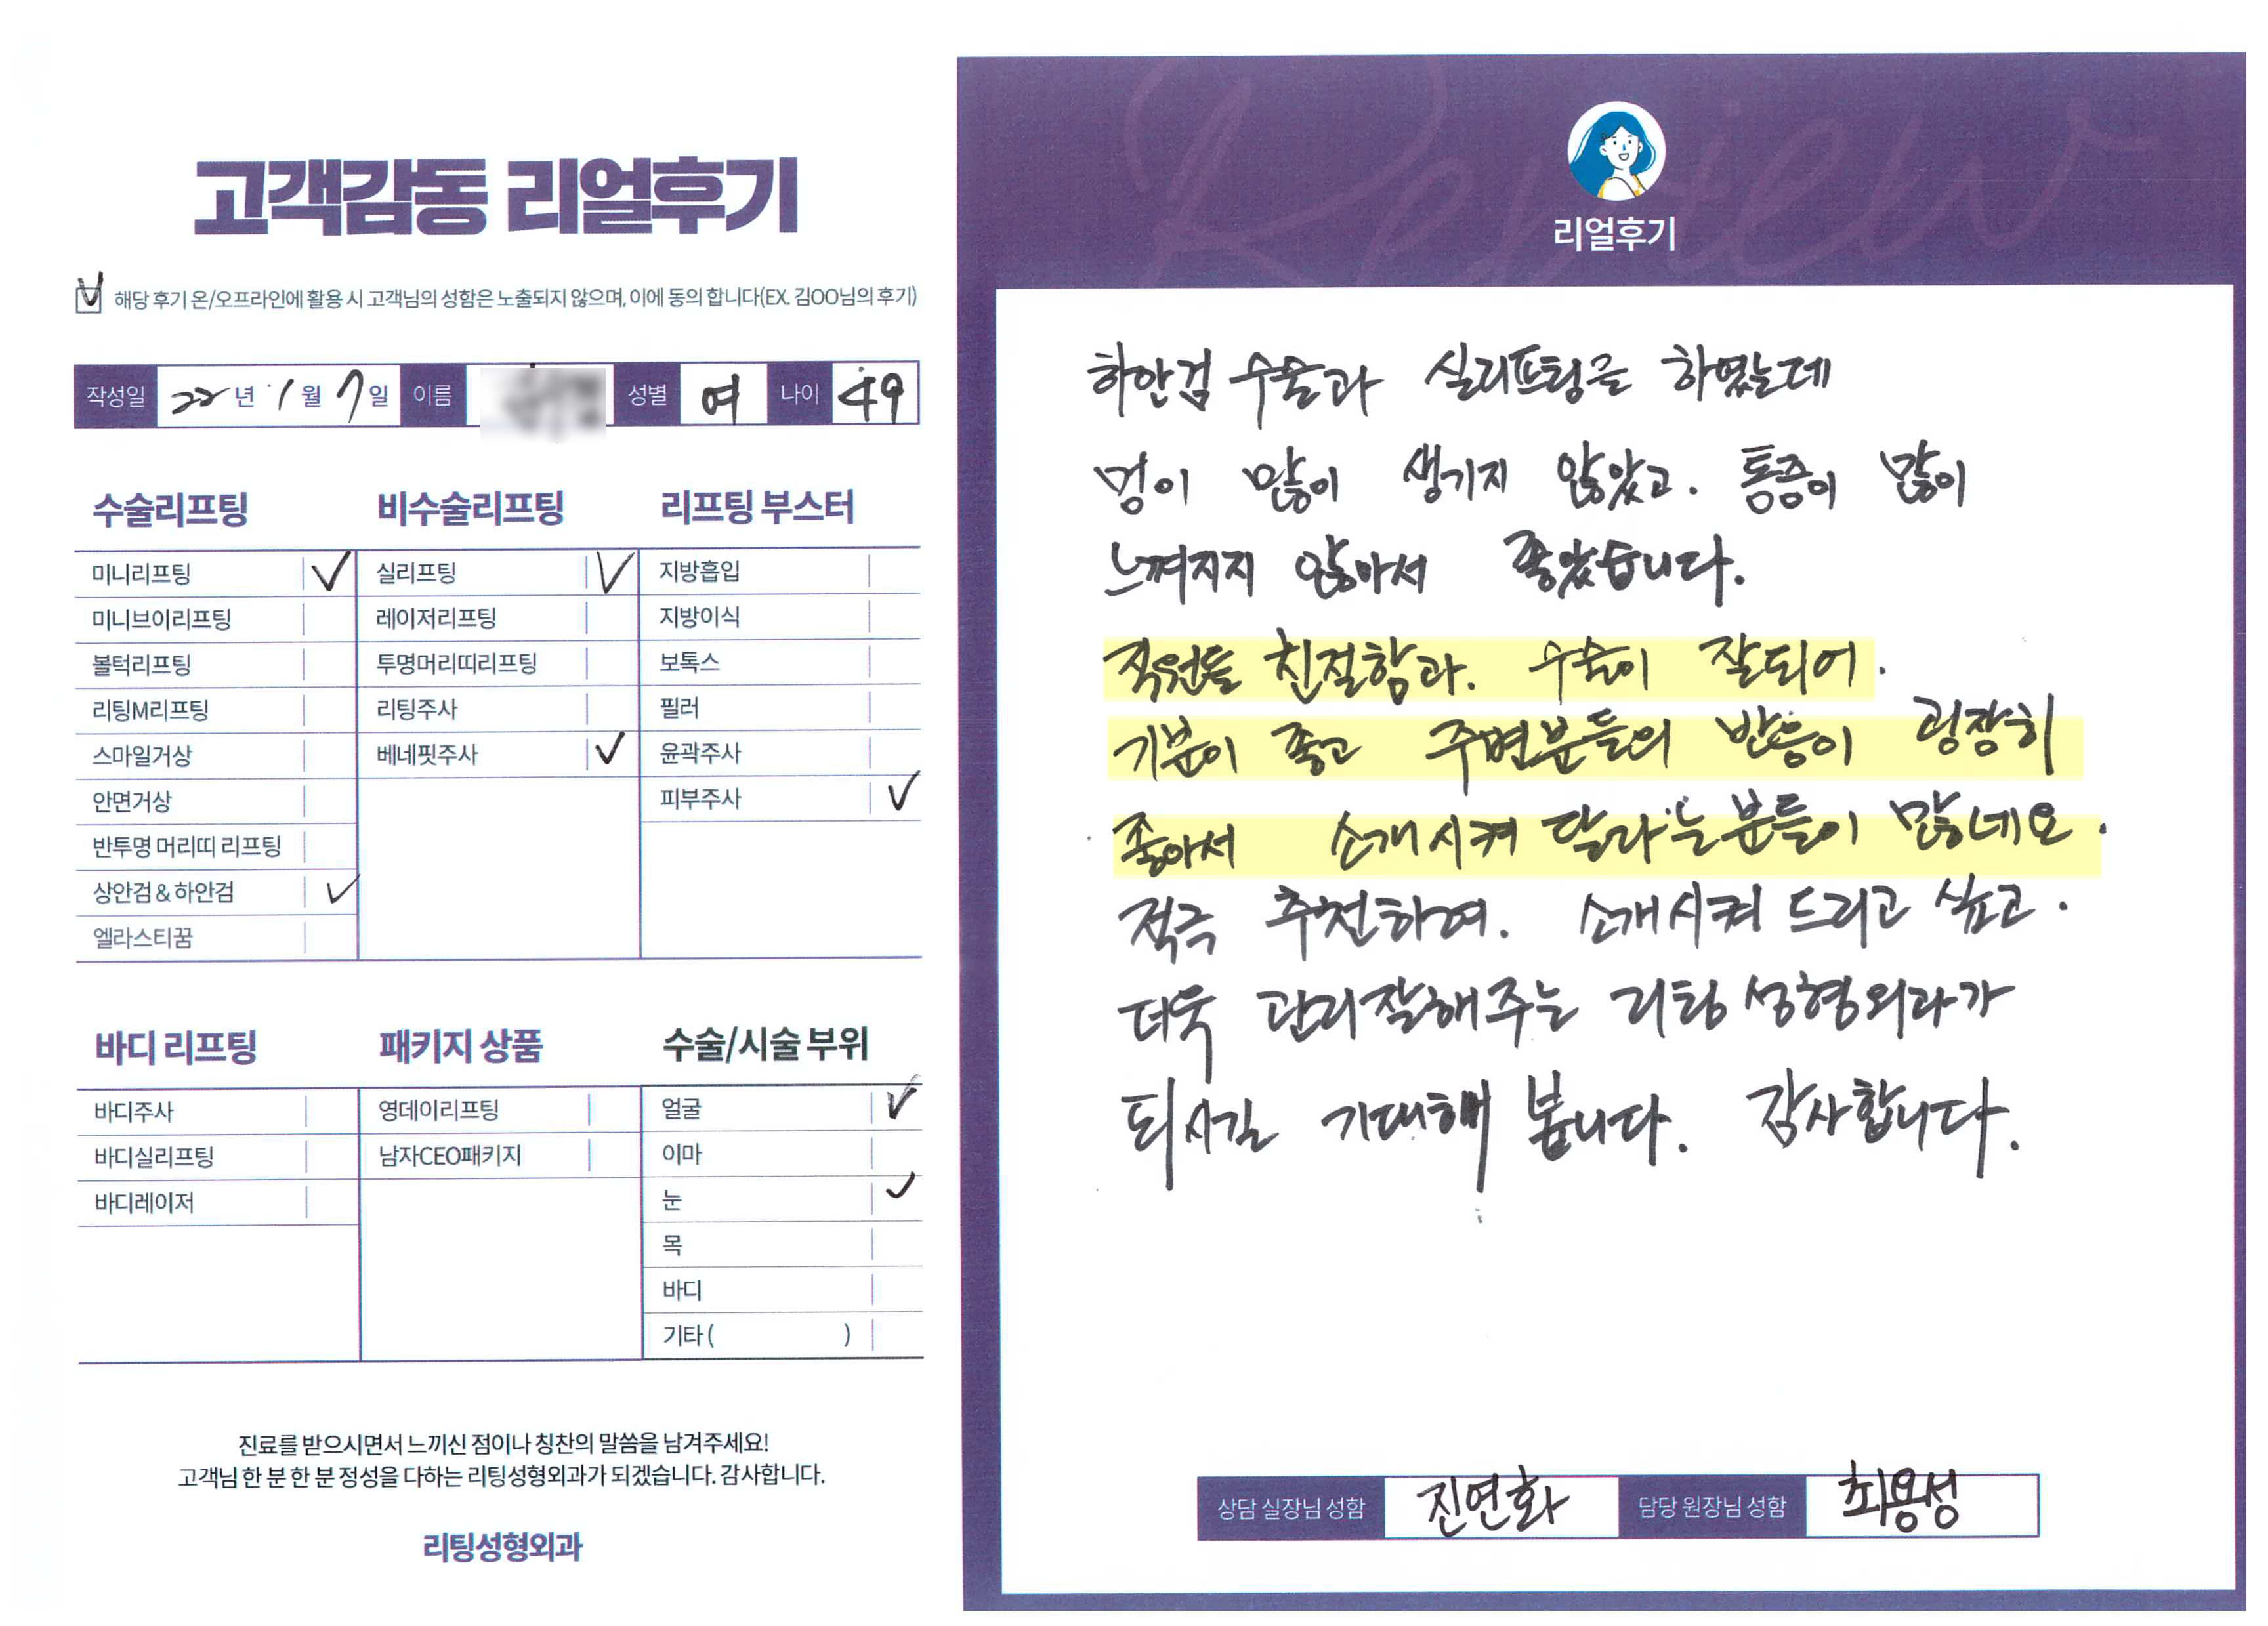 고객감동 리얼후기
해당 후기 온/오프라인에 활용 시 고객님의 성함은 노출되지 않으며, 이에 동의 합니다(EX. 김OO님의 후기)
작성일 22년 1월 7일 이름 성별 여 나이 49
수술리프팅 비수술리프팅 리프팅 부스터
미니리프팅 실리프팅 지방흡입
미니브이리프팅 레이저리프팅 지방이식
볼턱리프팅 투명머리띠리프팅 보톡스
리팅M리프팅 리팅주사 필러
스마일거상 베네핏주사 윤곽주사
안면거상 피부주사
반투명 머리띠 리프팅
상안검 & 하안검
엘라스티꿈
바디 리프팅 패키지 상품 수술/시술 부위
바디주사 영데이리프팅 얼굴
바디실리프팅 남자CEO패키지 이마
바디레이저 눈
목
바디
기타 ( )
진료를 받으시면서 느끼신 점이나 칭찬의 말씀을 남겨주세요!
고객님 한 분 한 분 정성을 다하는 리팅성형외과가 되겠습니다. 감사합니다.
리팅성형외과
Review
리얼후기
하안검 수술과 실리프팅을 하였는데
멍이 많이 생기지 않았고. 통증이 많이
느껴지지 않아서 좋았습니다.
직원들 친절함과. 수술이 잘되어.
기분이 좋고 주변분들의 반응이 굉장히
좋아서 소개시켜 달라는 분들이 많네요.
적극 추천하여. 소개시켜 드리고 싶고.
더욱 관리잘해주는 리팅 성형외과가
되시길 기대해 봅니다. 감사합니다.
상담 실장님 성함 진연화 담당 원장님 성함 최용성